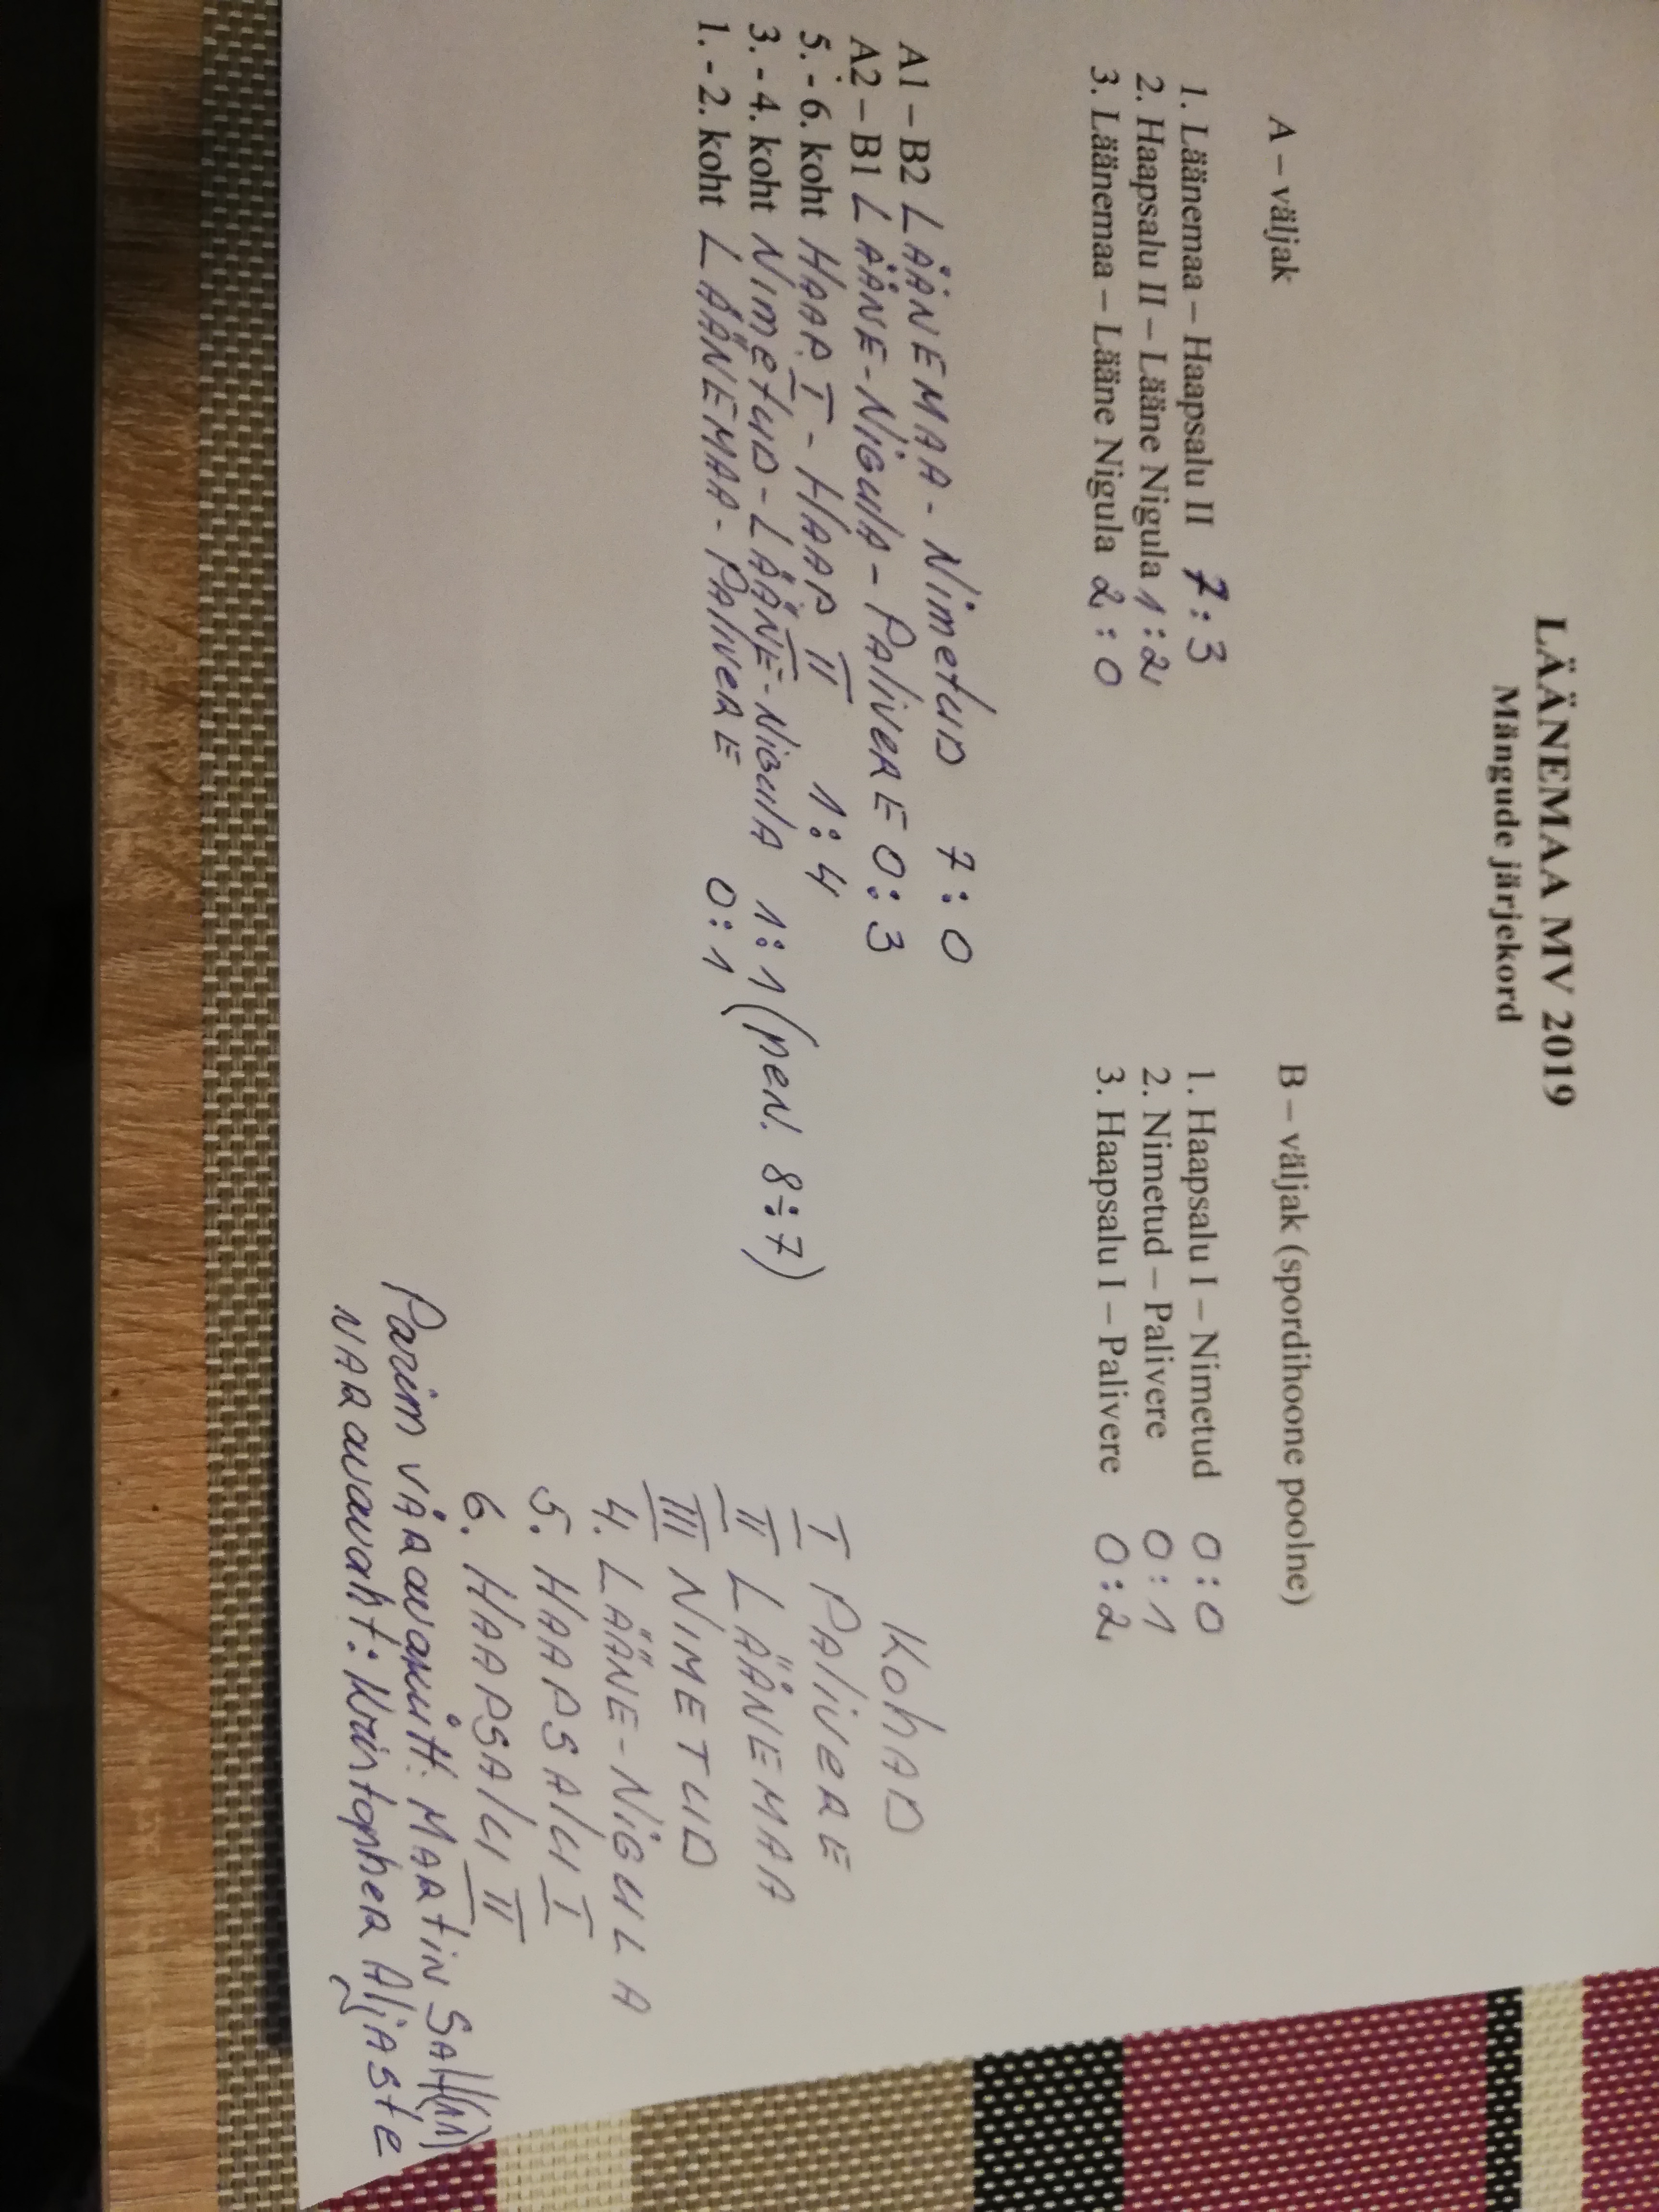 LÄÄNEMAA MV 2019
Mängude järjekord
A – väljak
1. Läänemaa – Haapsalu II 7:3
2. Haapsalu II – Lääne Nigula 1:2
3. Läänemaa – Lääne Nigula 2:0
B – väljak (spordihoone poolne)
1. Haapsalu I – Nimetud 0:0
2. Nimetud – Palivere 0:1
3. Haapsalu I – Palivere 0:2
A1 – B2 LÄÄNEMAA - NimetUD 7:0
A2 – B1 LÄÄNE-NiGulA - PAlivERE 0:3
5. - 6. koht HAAP. I - HAAP II 1:4
3. - 4. koht NimetUD - LÄÄNE-NiGulA 1:1 (pen. 8:7)
1. - 2. koht LÄÄNEMAA - PAlivERE 0:1
KohAD
I PAlivERE
II LÄÄNEMAA
III NIMETUD
4. LÄÄNE-NiGULA
5. HAAPSALU I
6. HAAPSALU II
Parim väravakütt: MARtiN
väravavaht: Kristopher Aljaste